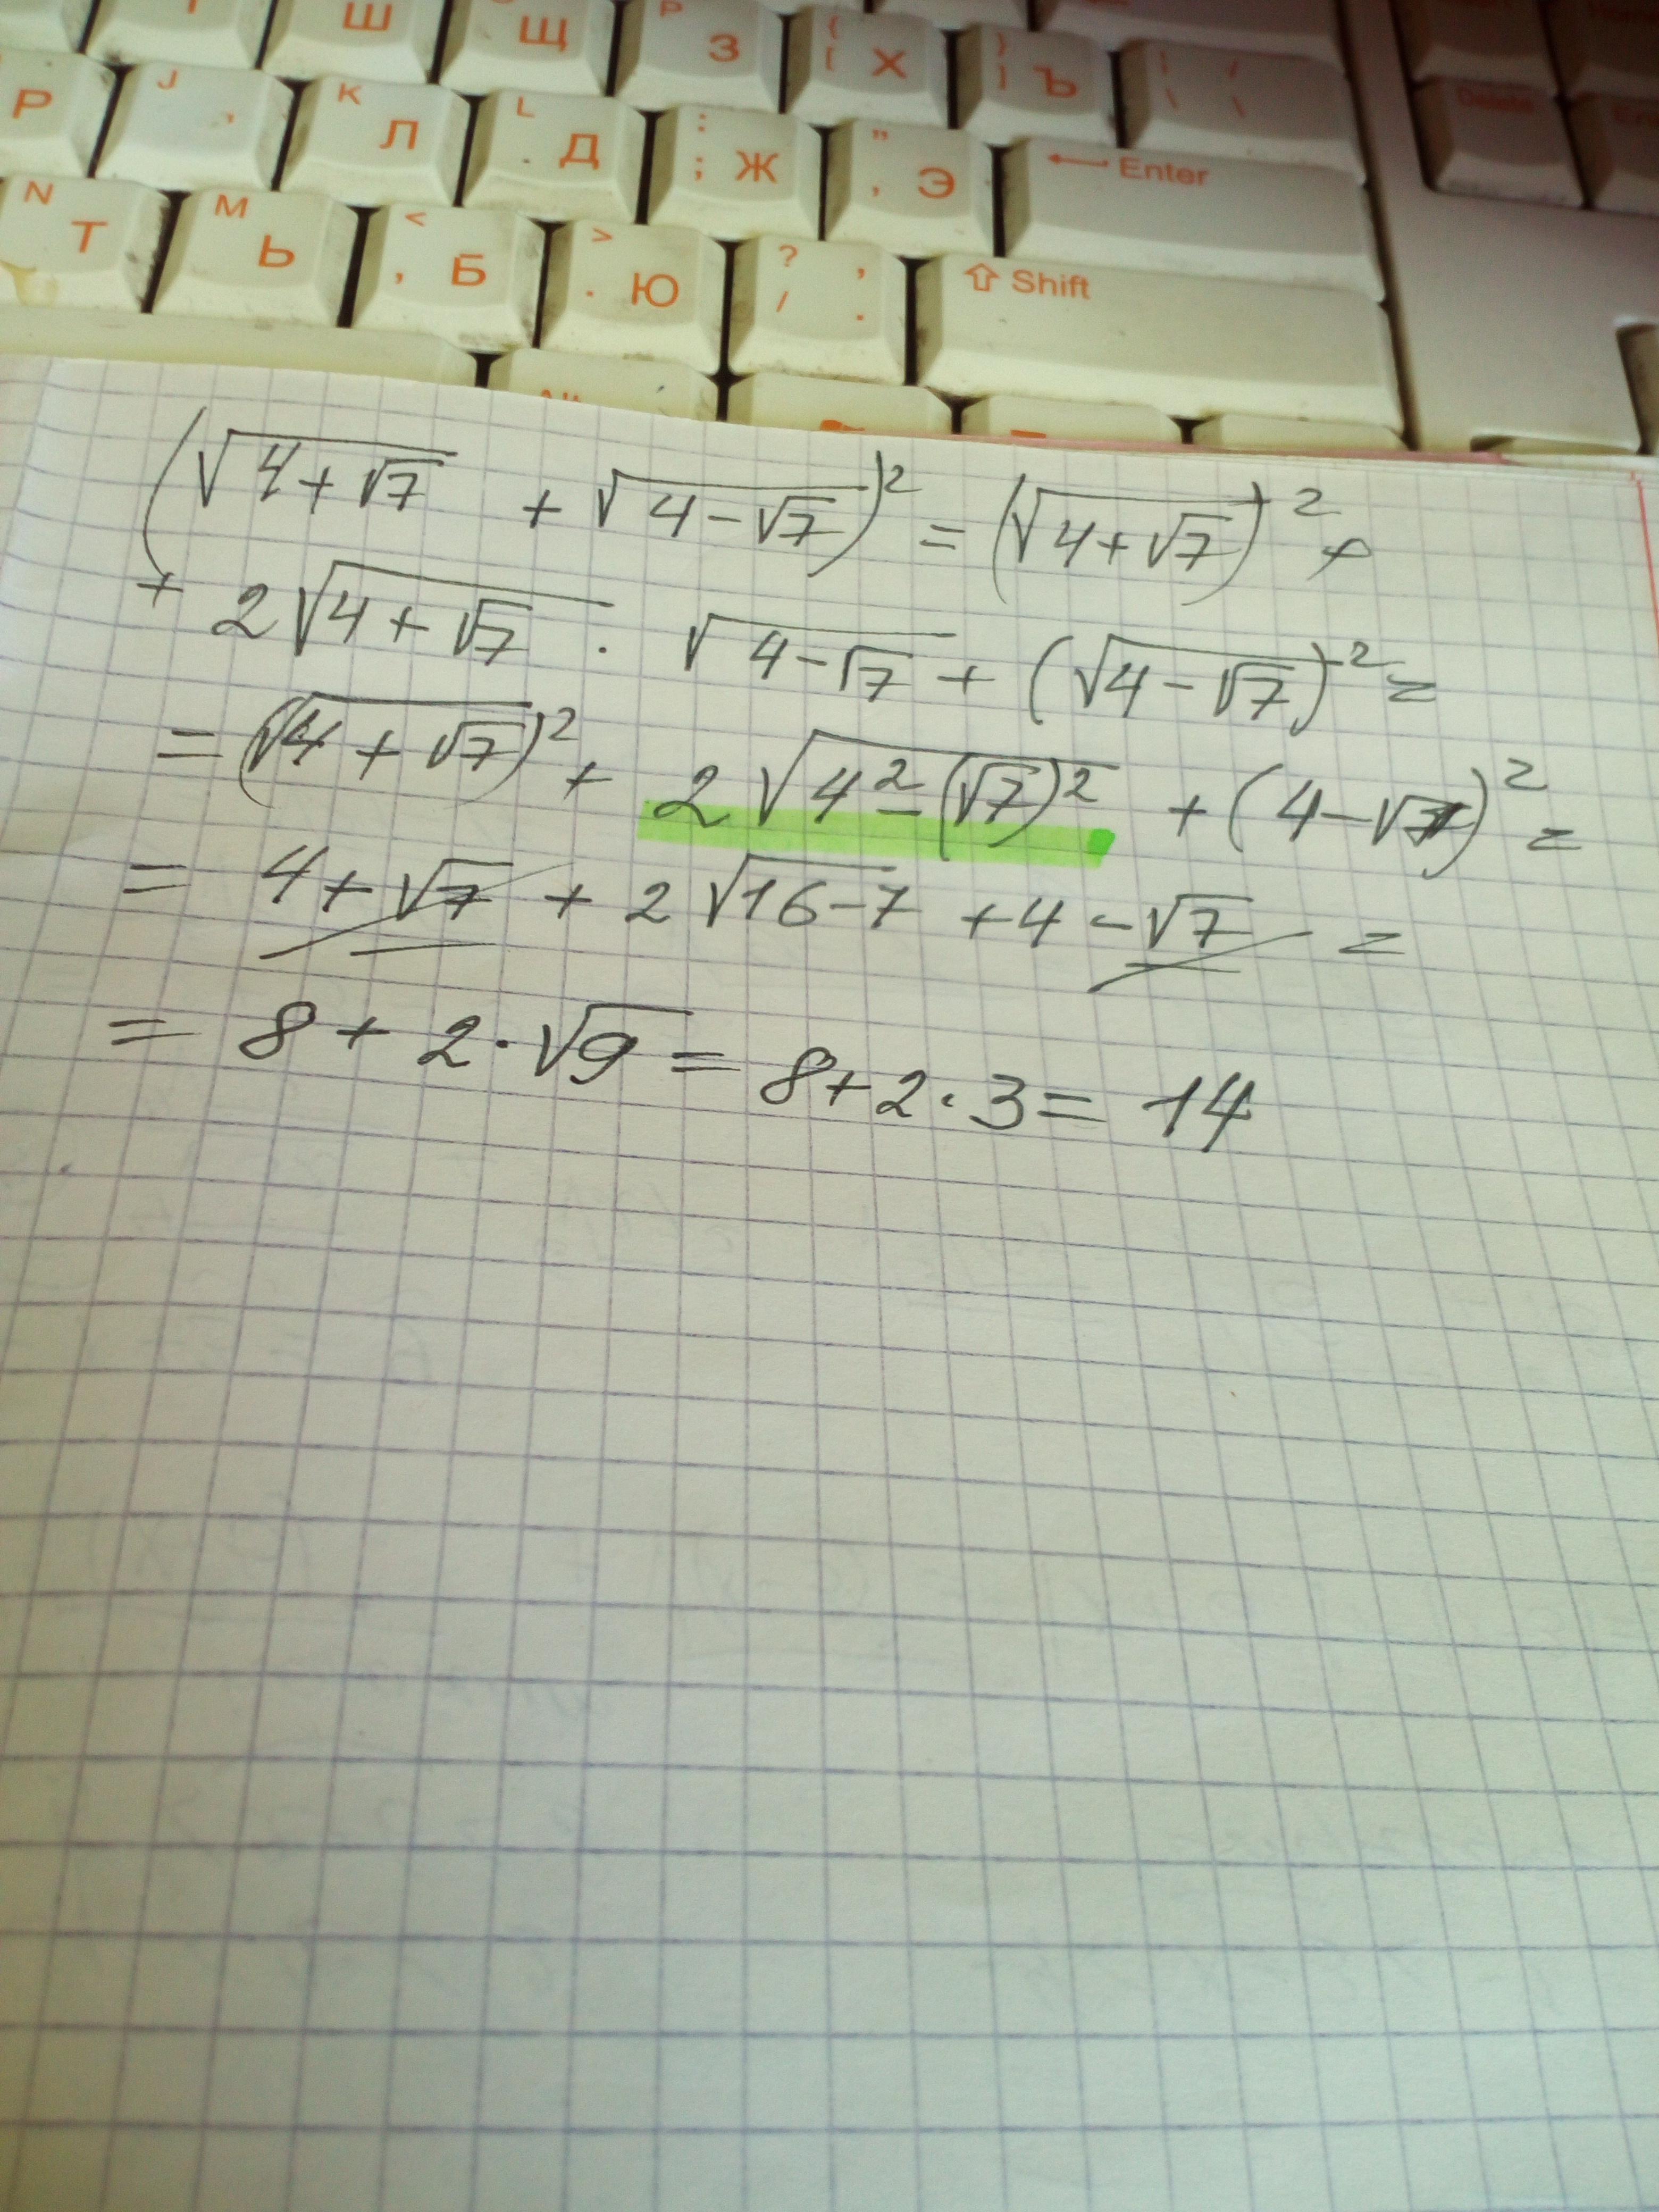 Ш Щ P З { [ Х } ] Ъ | \ / \
Р J , K Л L . Д : ; Ж " , Э ← Enter Delete
N Т M Ь < , Б > . Ю ? / , . ⇧ Shift
Alt
(√(4+√7) + √(4-√7))² = (√(4+√7))² +
+ 2√(4+√7) · √(4-√7) + (√(4-√7))² =
= (√(4+√7))² + 2√(4²-(√7)²) + (4-√7)² =
= 4+√7 + 2√(16-7) + 4 - √7 =
= 8 + 2·√9 = 8+2·3 = 14